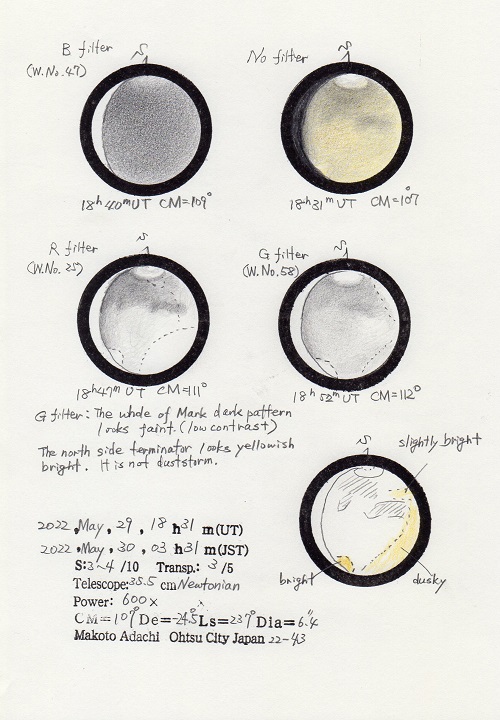 B filter
(W.No.47)
S
18h40mUT CM=109°
No filter
S
18h31mUT CM=107°
R filter
(W.No.25)
S
18h47mUT CM=111°
G filter
(W.No.58)
S
18h52mUT CM=112°
G filter: The whole of Mark dark pattern
looks faint. (low contrast)
The north side terminator looks yellowish
bright. It is not duststorm.
S
slightly bright
bright
dusky
2022,May,29,18 h31 m(UT)
2022,May,30,03 h31 m(JST)
S:3~4 /10 Transp.: 3 /5
Telescope:35.5 cm Newtonian
Power: 600x
CM=107° De=-24.5° Ls=237° Dia=6.″4
Makoto Adachi Ohtsu City Japan 22-43